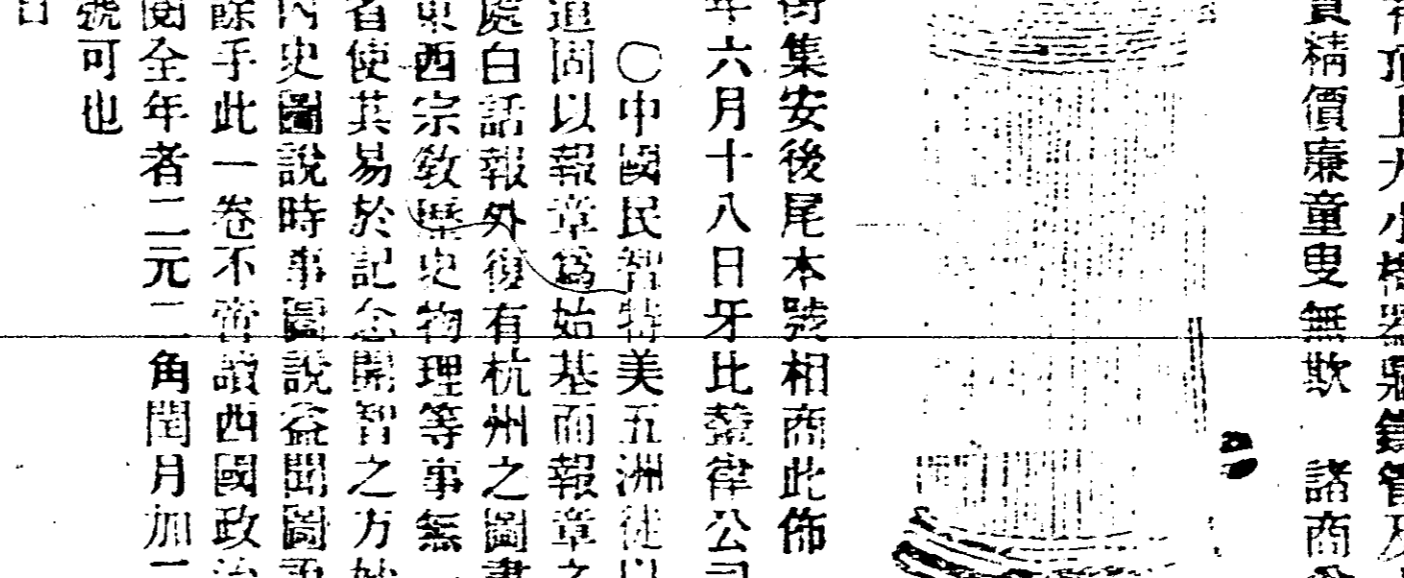 頂上大小機器
貨精價廉童叟無欺 諸商
街集安後尾本號相商此佈
年六月十八日牙比薩律公司
〇中國民智特美五洲徒以
道固以報章爲始基而報章之
處白話報外復有杭州之圖書
東西宗敎歷史物理等事無
者使其易於記念開智之方妙
內史圖說時事圖說益聞圖說
餘手此一卷不啻讀西國政治
閱全年者二元二角閏月加一
號可也